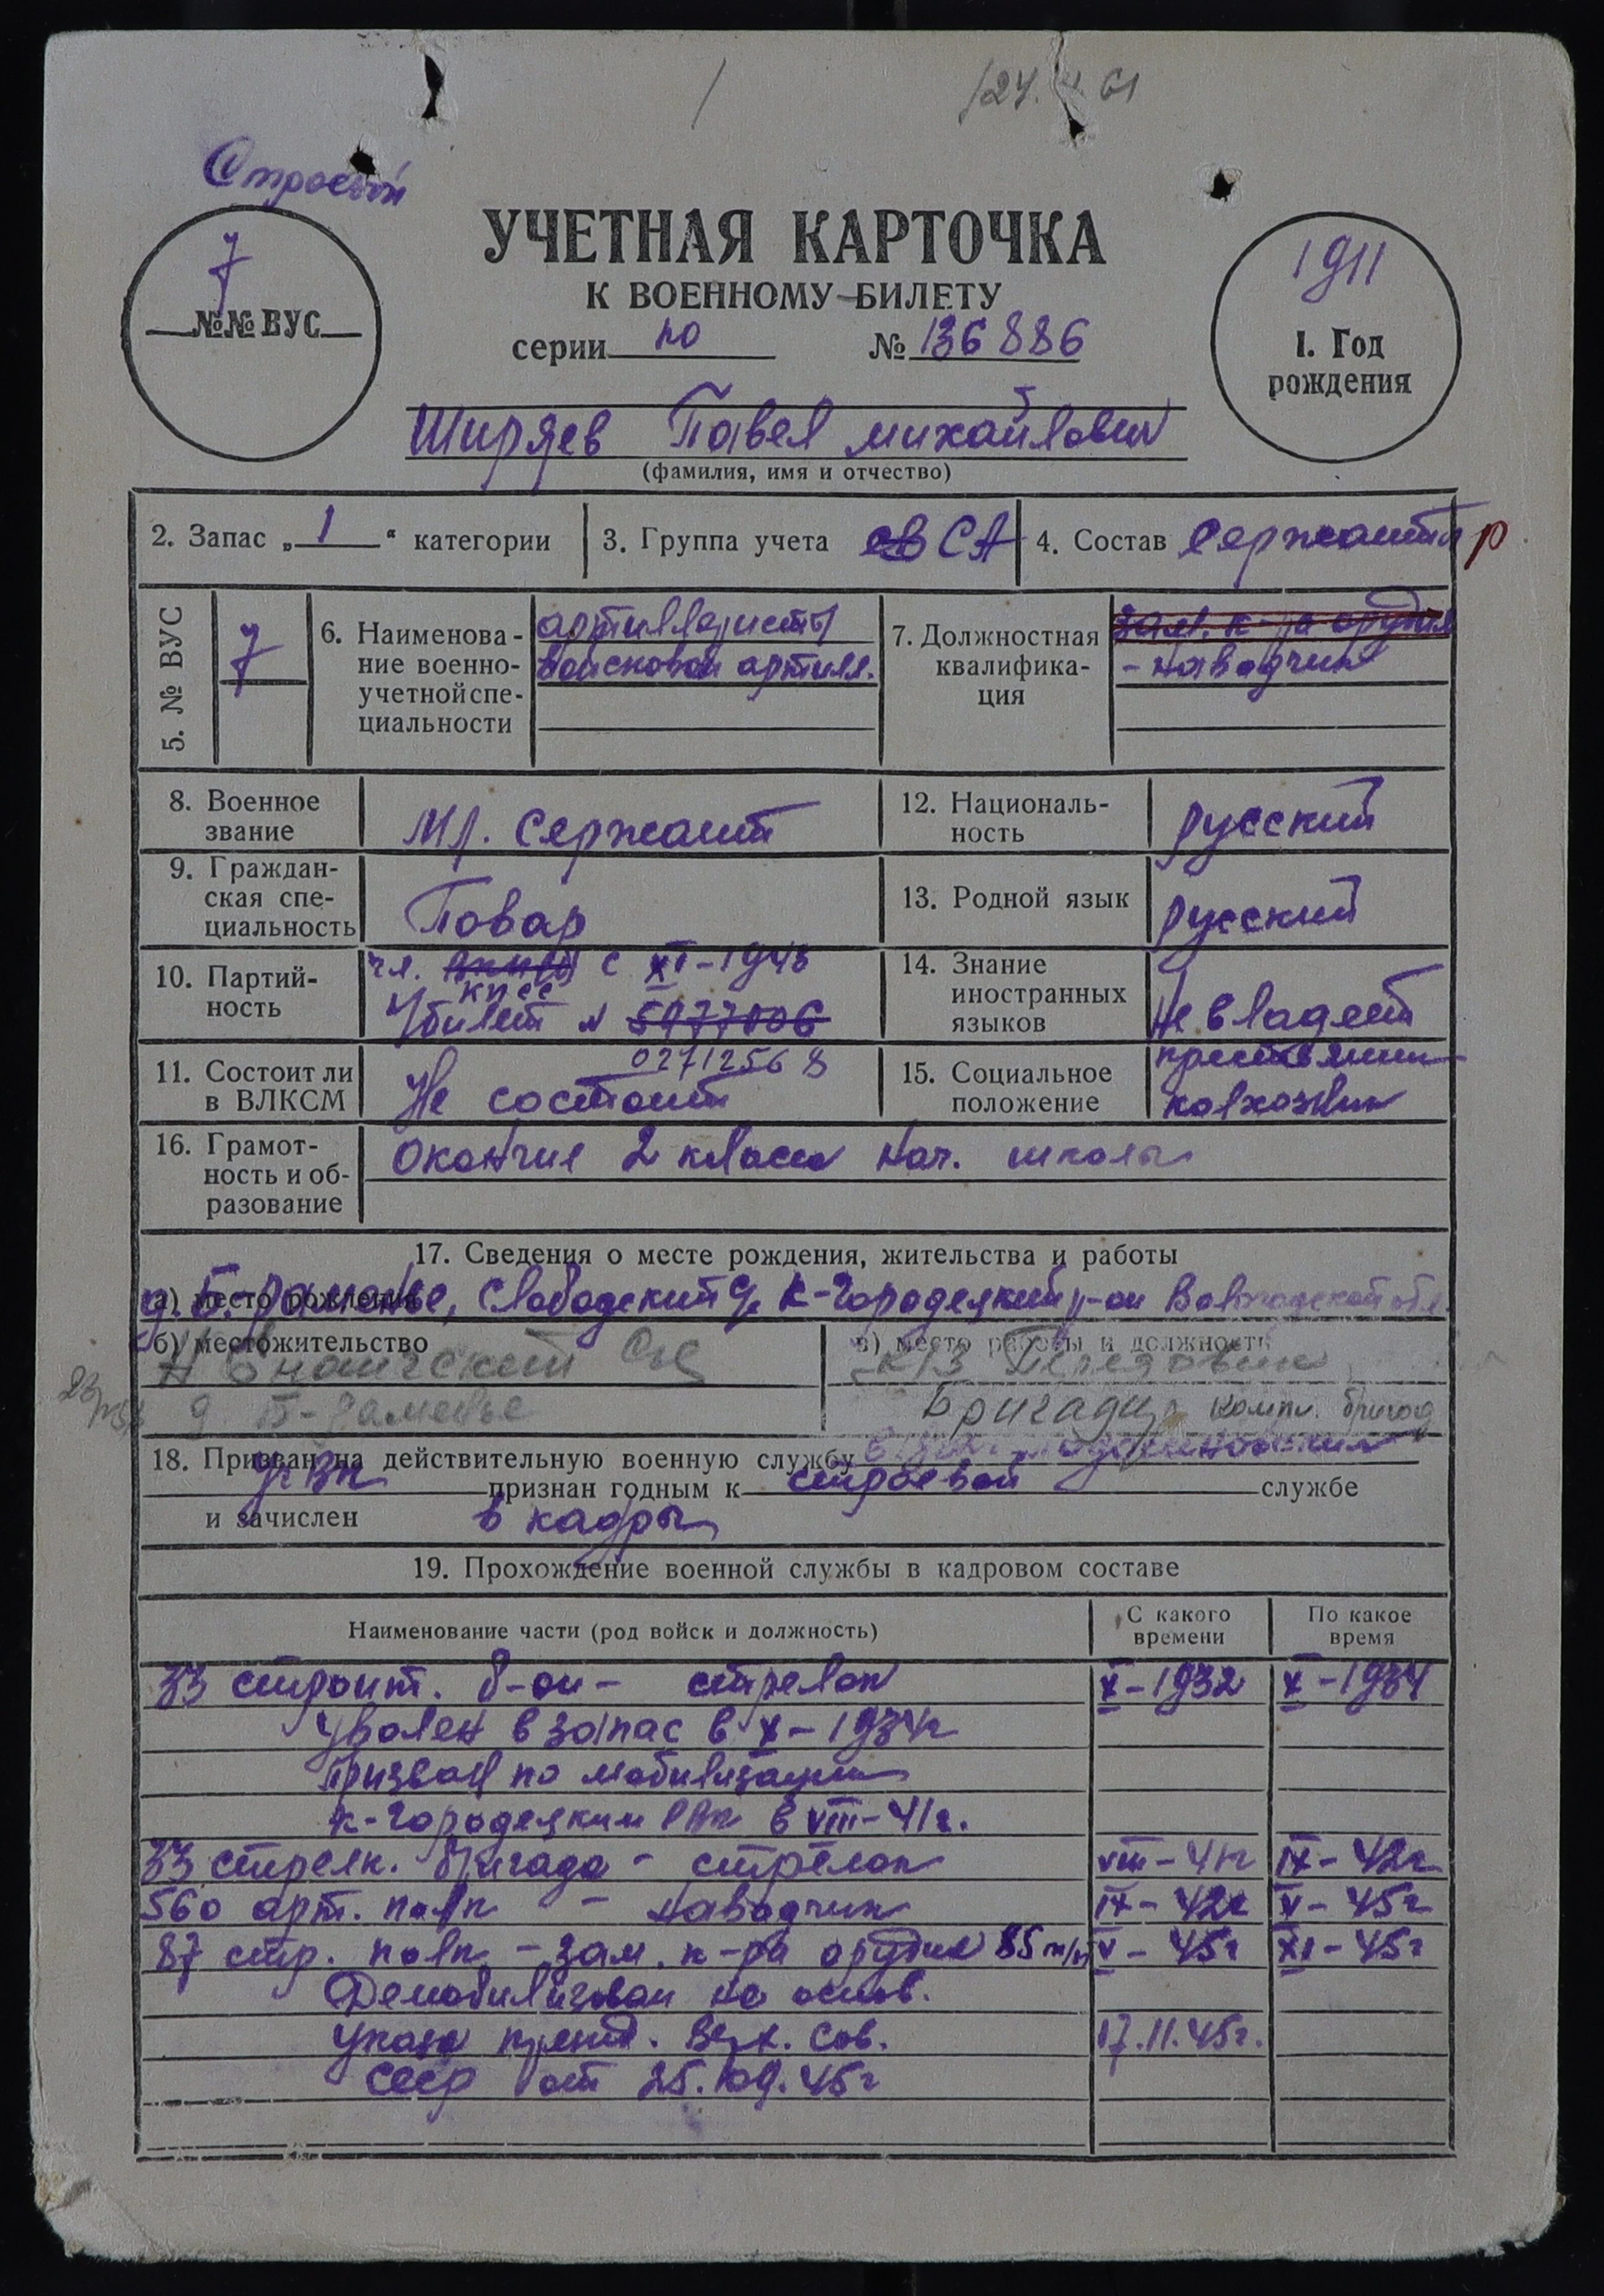 24. 61
Строевой
УЧЕТНАЯ КАРТОЧКА
К ВОЕННОМУ БИЛЕТУ
7
№№ ВУС
серии по № 136886
1911
1. Год
рождения
Ширяев Павел Михайлович
(фамилия, имя и отчество)
2. Запас „1“ категории
3. Группа учета СА
4. Состав сержанты р
5. № ВУС
7
6. Наименова-
ние военно-
учетной спе-
циальности
артиллеристы
войсковой артилл.
7. Должностная
квалифика-
ция
зам. к-ра орудия
- наводчик
8. Военное
звание
Мл. Сержант
9. Граждан-
ская спе-
циальность
Повар
10. Партий-
ность
чл. с XI-1943
КПСС
билет №
02712568
11. Состоит ли
в ВЛКСМ
Не состоит
12. Националь-
ность
русский
13. Родной язык
русский
14. Знание
иностранных
языков
Не владеет
15. Социальное
положение
колхозник
16. Грамот-
ность и об-
разование
Окончил 2 класса нач. школы
17. Сведения о месте рождения, жительства и работы
а) место рождения
д. Б-Раменье, Слободский с/с К-Городецкий р-он Вологодской обл.
б) местожительство
с/с
д. Б-Раменье
в) место работы и должность
к/з Передовик
Бригадир компл. бригад
18. Призван на действительную военную службу
признан годным к строевой службе
и зачислен в кадры
19. Прохождение военной службы в кадровом составе
Наименование части (род войск и должность)
С какого
времени
По какое
время
33 строит. б-он - стрелок X-1932 X-1934
Уволен в запас в X-1934г
Призван по мобилизации
К-Городецким РВК в VIII-41г.
33 стрелк. бригада - стрелок VIII-41г IX-42г
560 арт. полк - наводчик IX-42г V-45г
87 стр. полк - зам. к-ра орудия 85 м/м V-45г XI-45г
Демобилизован на основ.
Указа през. Верх. Сов. 17.11.45г.
СССР от 25.09.45г